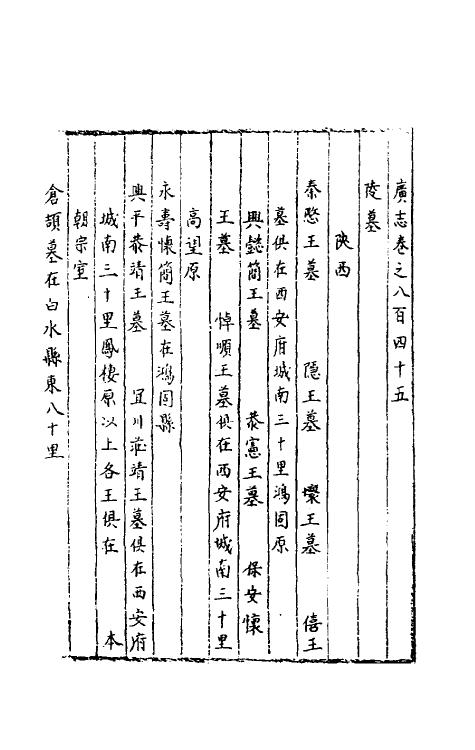 廣志卷之八百四十五
陵墓
陝西
秦愍王墓 隱王墓 僖王
墓俱在西安府城南三十里鴻固原
興懿簡王墓 恭憲王墓 保安懷
王墓 悼順王墓俱在西安府城南三十里
高望原
永壽懷簡王墓在鴻固縣
興平恭靖王墓 宜川莊靖王墓俱在西安府
城南三十里鳳棲原以上各王俱在 本
朝宗室
倉頡墓在白水縣東八十里